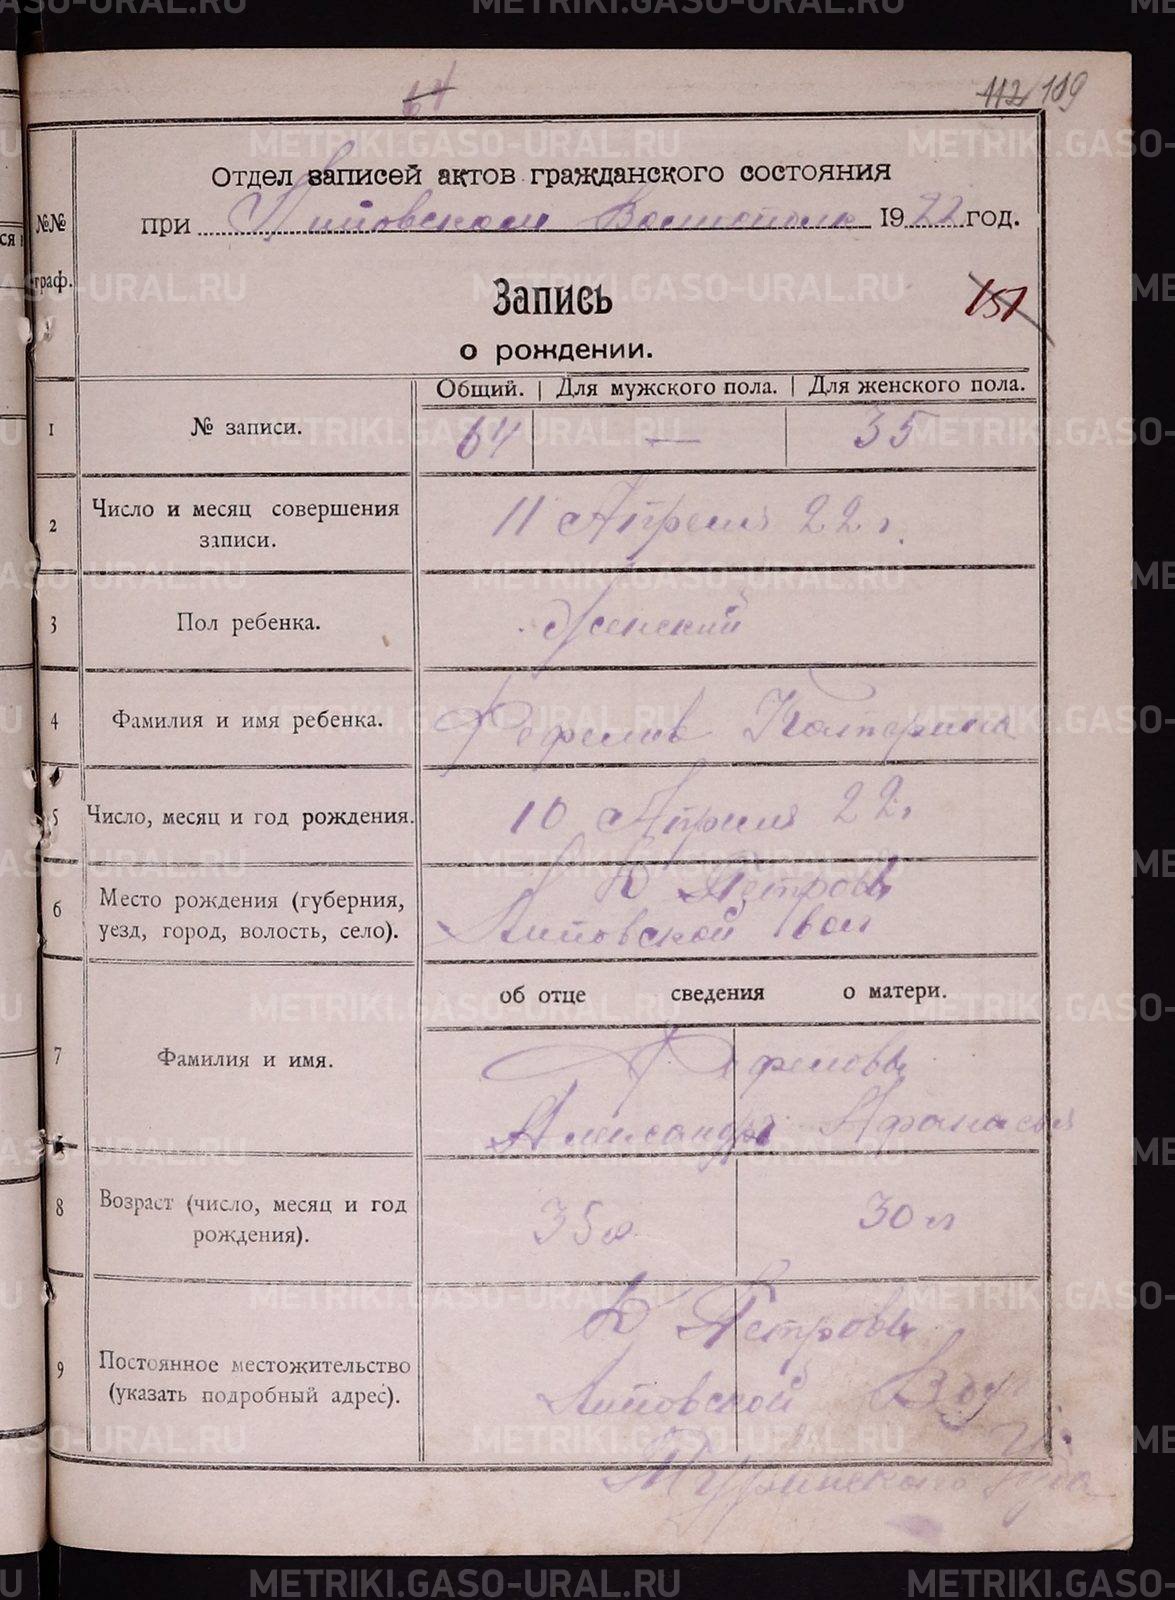 64
112 109
Отдел записей актов гражданского состояния
при Липовском Волисполк 1922 год.
№№
граф.
Запись
151
о рождении.
Общий. | Для мужского пола. | Для женского пола.
1 № записи. 64 — 35
2 Число и месяц совершения
записи.
11 Апреля 22 г.
3 Пол ребенка. Женский
4 Фамилия и имя ребенка. Катерина
5 Число, месяц и год рождения. 10 Апреля 22 г
6 Место рождения (губерния,
уезд, город, волость, село).
Петровы
Липовской вол
об отце сведения о матери.
7 Фамилия и имя.
Александр Афанасья
8 Возраст (число, месяц и год
рождения).
35 30 л
9 Постоянное местожительство
(указать подробный адрес).
Петровы
Липовской
Туринского
METRIKI.GASO-URAL.RU